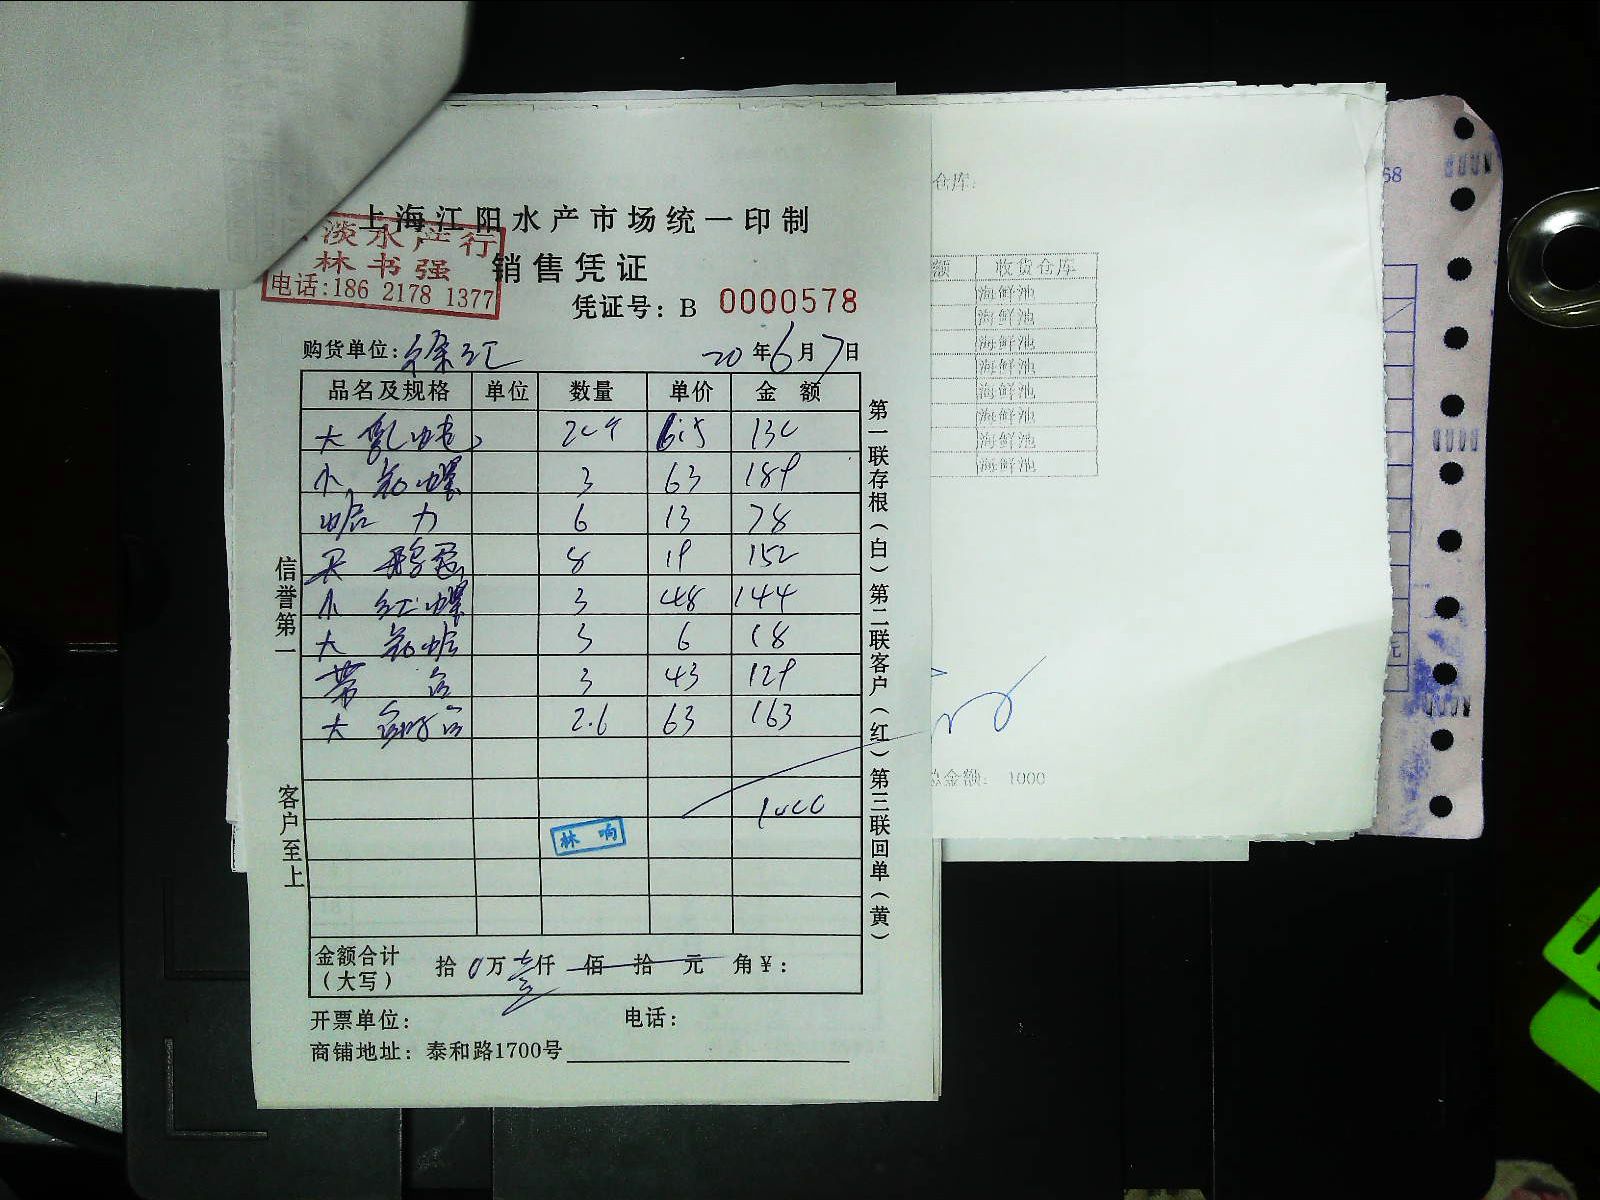 上海江阳水产市场统一印制
淡水产行
林书强
电话:186 2178 1377
销售凭证
凭证号: B 0000578
购货单位: 徐汇 20年6月7日
品名及规格 单位 数量 单价 金额
大 6.5 130
小 3 63 189
蛤 力 6 13 78
8 19 152
小 红螺 3 48 144
大 3 6 18
带 3 43 129
大 2.6 63 163
1000
林响
金额合计(大写) 拾0万壹仟佰拾元角¥:
开票单位: 电话:
商铺地址: 泰和路1700号
信誉第一
客户至上
第一联存根(白)第二联客户(红)第三联回单(黄)
仓库:
额 收货仓库
海鲜池
海鲜池
海鲜池
海鲜池
海鲜池
海鲜池
海鲜池
海鲜池
总金额: 1000
68
元